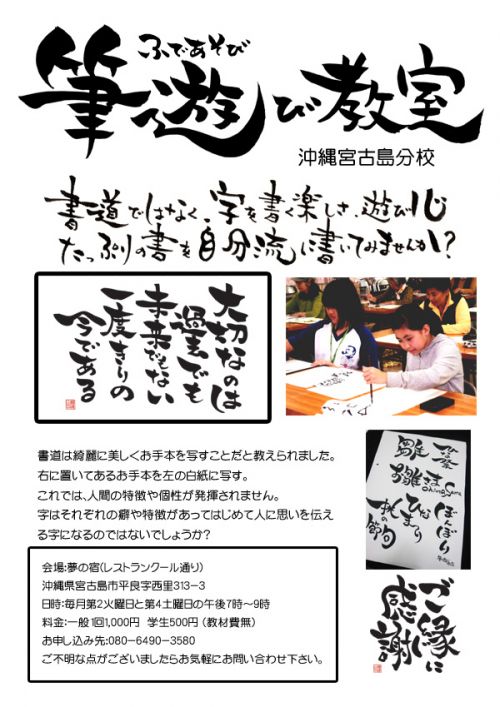 ふであそび
筆遊び教室
沖縄宮古島分校
書道ではなく、字を書く楽しさ、遊び心
たっぷりの書を自分流に書いてみませんか?
大切なのは
過去でも
未来でもない
一度きりの
今である
書道は綺麗に美しくお手本を写すことだと教えられました。
右に置いてあるお手本を左の白紙に写す。
これでは、人間の特徴や個性が発揮されません。
字はそれぞれの癖や特徴があってはじめて人に思いを伝え
る字になるのではないでしょうか?
ひな祭
雛
お雛さま
ohinasama
ぼんぼり
ひなまつり
桃の節句
会場:夢の宿(レストランクール通り)
沖縄県宮古島市平良字西里313-3
日時:毎月第2火曜日と第4土曜日の午後7時~9時
料金:一般1回1,000円 学生500円(教材費無)
お申し込み先:080-6490-3580
ご不明な点がございましたらお気軽にお問い合わせ下さい。
ご縁に
感謝